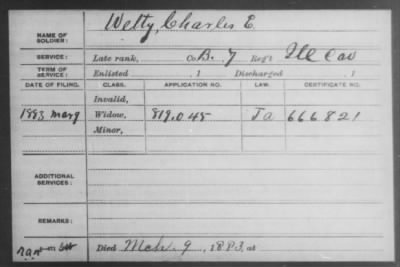 NAME OF SOLDIER: Welty, Charles E.
SERVICE: Late rank, Co. B. 7 Reg't Ill Cav
TERM OF SERVICE: Enlisted , 1 Discharged , 1
DATE OF FILING. CLASS. APPLICATION NO. LAW. CERTIFICATE NO.
Invalid,
1893 Mar 9 Widow, 819.045 Ia 666821
Minor,
ADDITIONAL SERVICES:
REMARKS:
Died Mch. 9, 1893, at